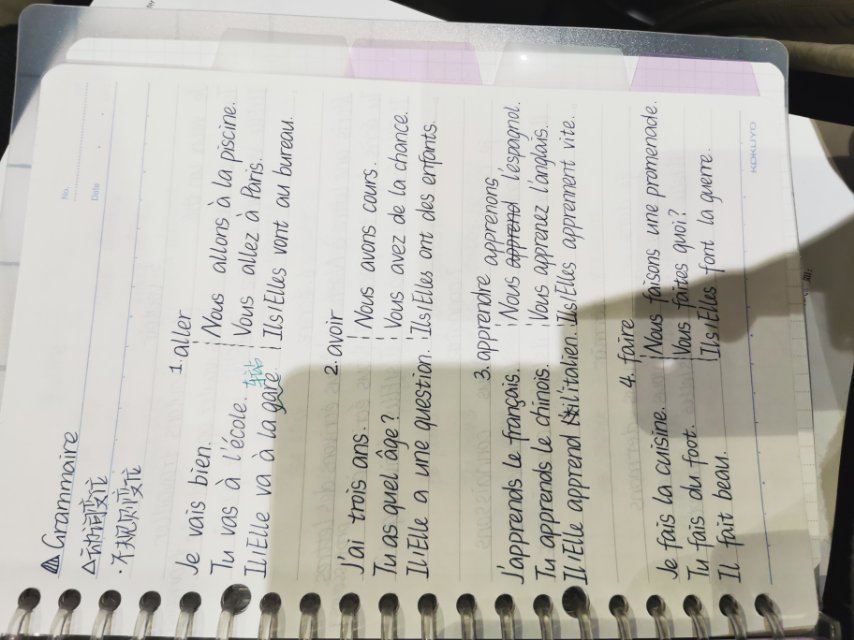 No.
Date
Grammaire
△动词变位
·不规则变位
1. aller
Je vais bien. Nous allons à la piscine.
Tu vas à l'école. Vous allez à Paris.
车站
Il/Elle va à la gare. Ils/Elles vont au bureau.
2. avoir
J'ai trois ans. Nous avons cours.
Tu as quel âge? Vous avez de la chance.
Il/Elle a une question. Ils/Elles ont des enfants.
3. apprendre apprenons
J'apprends le français. Nous apprend l'espagnol.
Tu apprends le chinois. Vous apprenez l'anglais.
Il/Elle apprend l'italien. Ils/Elles apprennent vite.
4. faire
Je fais la cuisine. Nous faisons une promenade.
Tu fais du foot. Vous faites quoi?
Il fait beau. Ils/Elles font la guerre.
KOKUYO